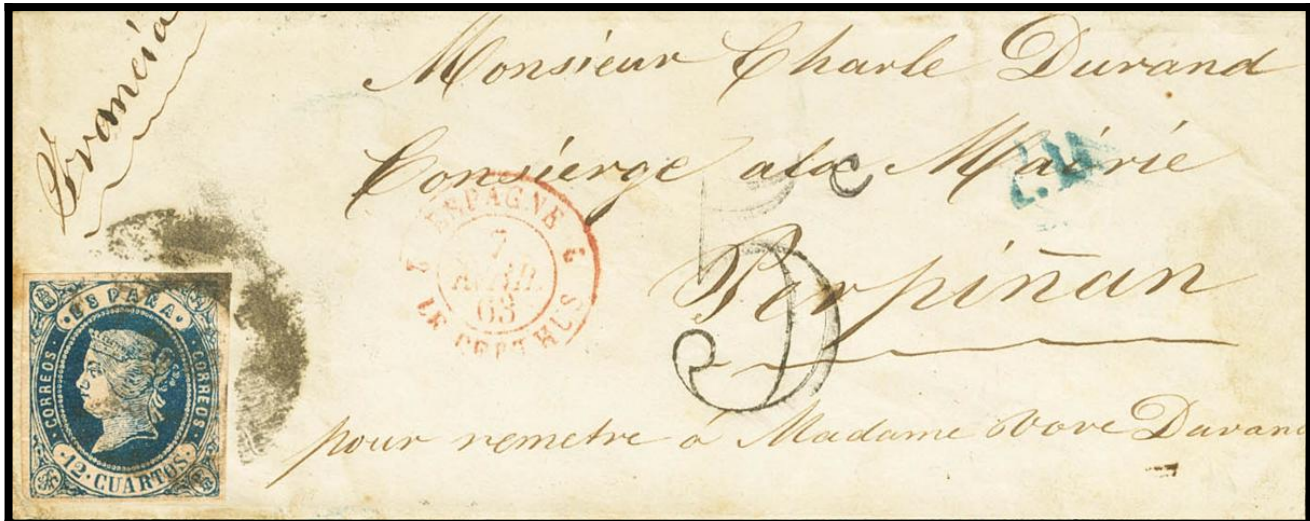 Francia
Monsieur Charle Durand
Concierge ala Mairie
Perpiñan
pour remetre à Madame Vove Durand
ESPAGNE
7
AVRIL
63
LE PERTHUS
2
2
5
ESPAÑA
CORREOS
CORREOS
12·CUARTOS